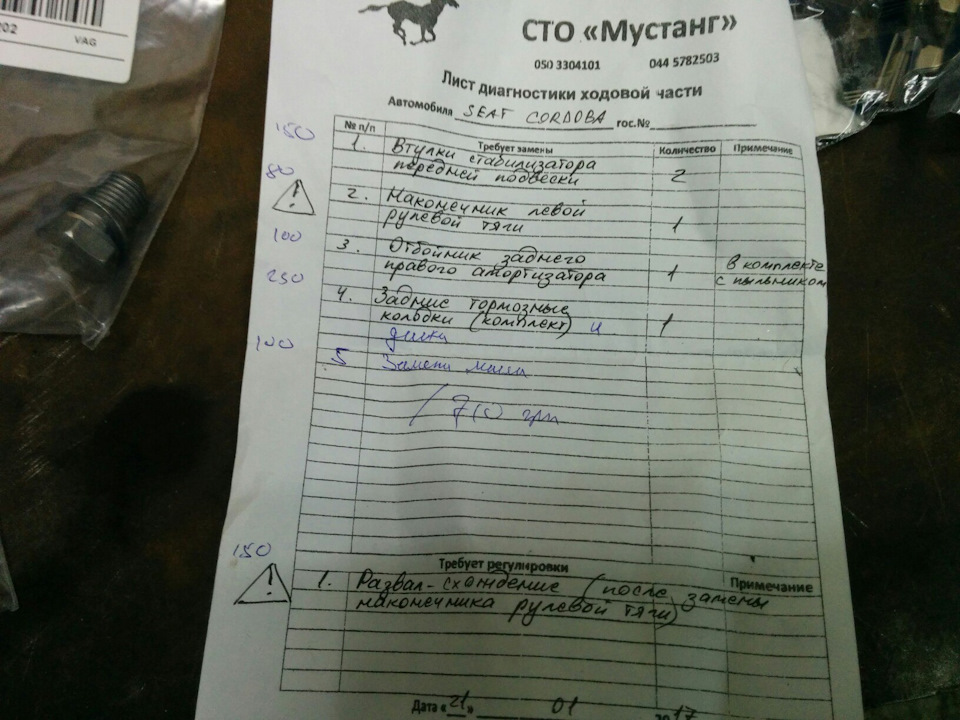 VAG
СТО «Мустанг»
050 3304101 044 5782503
Лист диагностики ходовой части
Автомобиля SEAT CORDOBA гос.№
№ п/п Требует замены Количество Примечание
150 1. Втулки стабилизатора
передней подвески 2
80
2. Наконечник левой
рулевой тяги 1
100 3. Отбойник заднего
правого амортизатора 1 в комплекте
с пыльником
250 4. Задние тормозные
колодки (комплект) и 1
диски
100 5 Замена масла
710 грн
150 Требует регулировки
1. Развал-схождение (после замены Примечание
наконечника рулевой тяги)
Дата «21» 01 2017